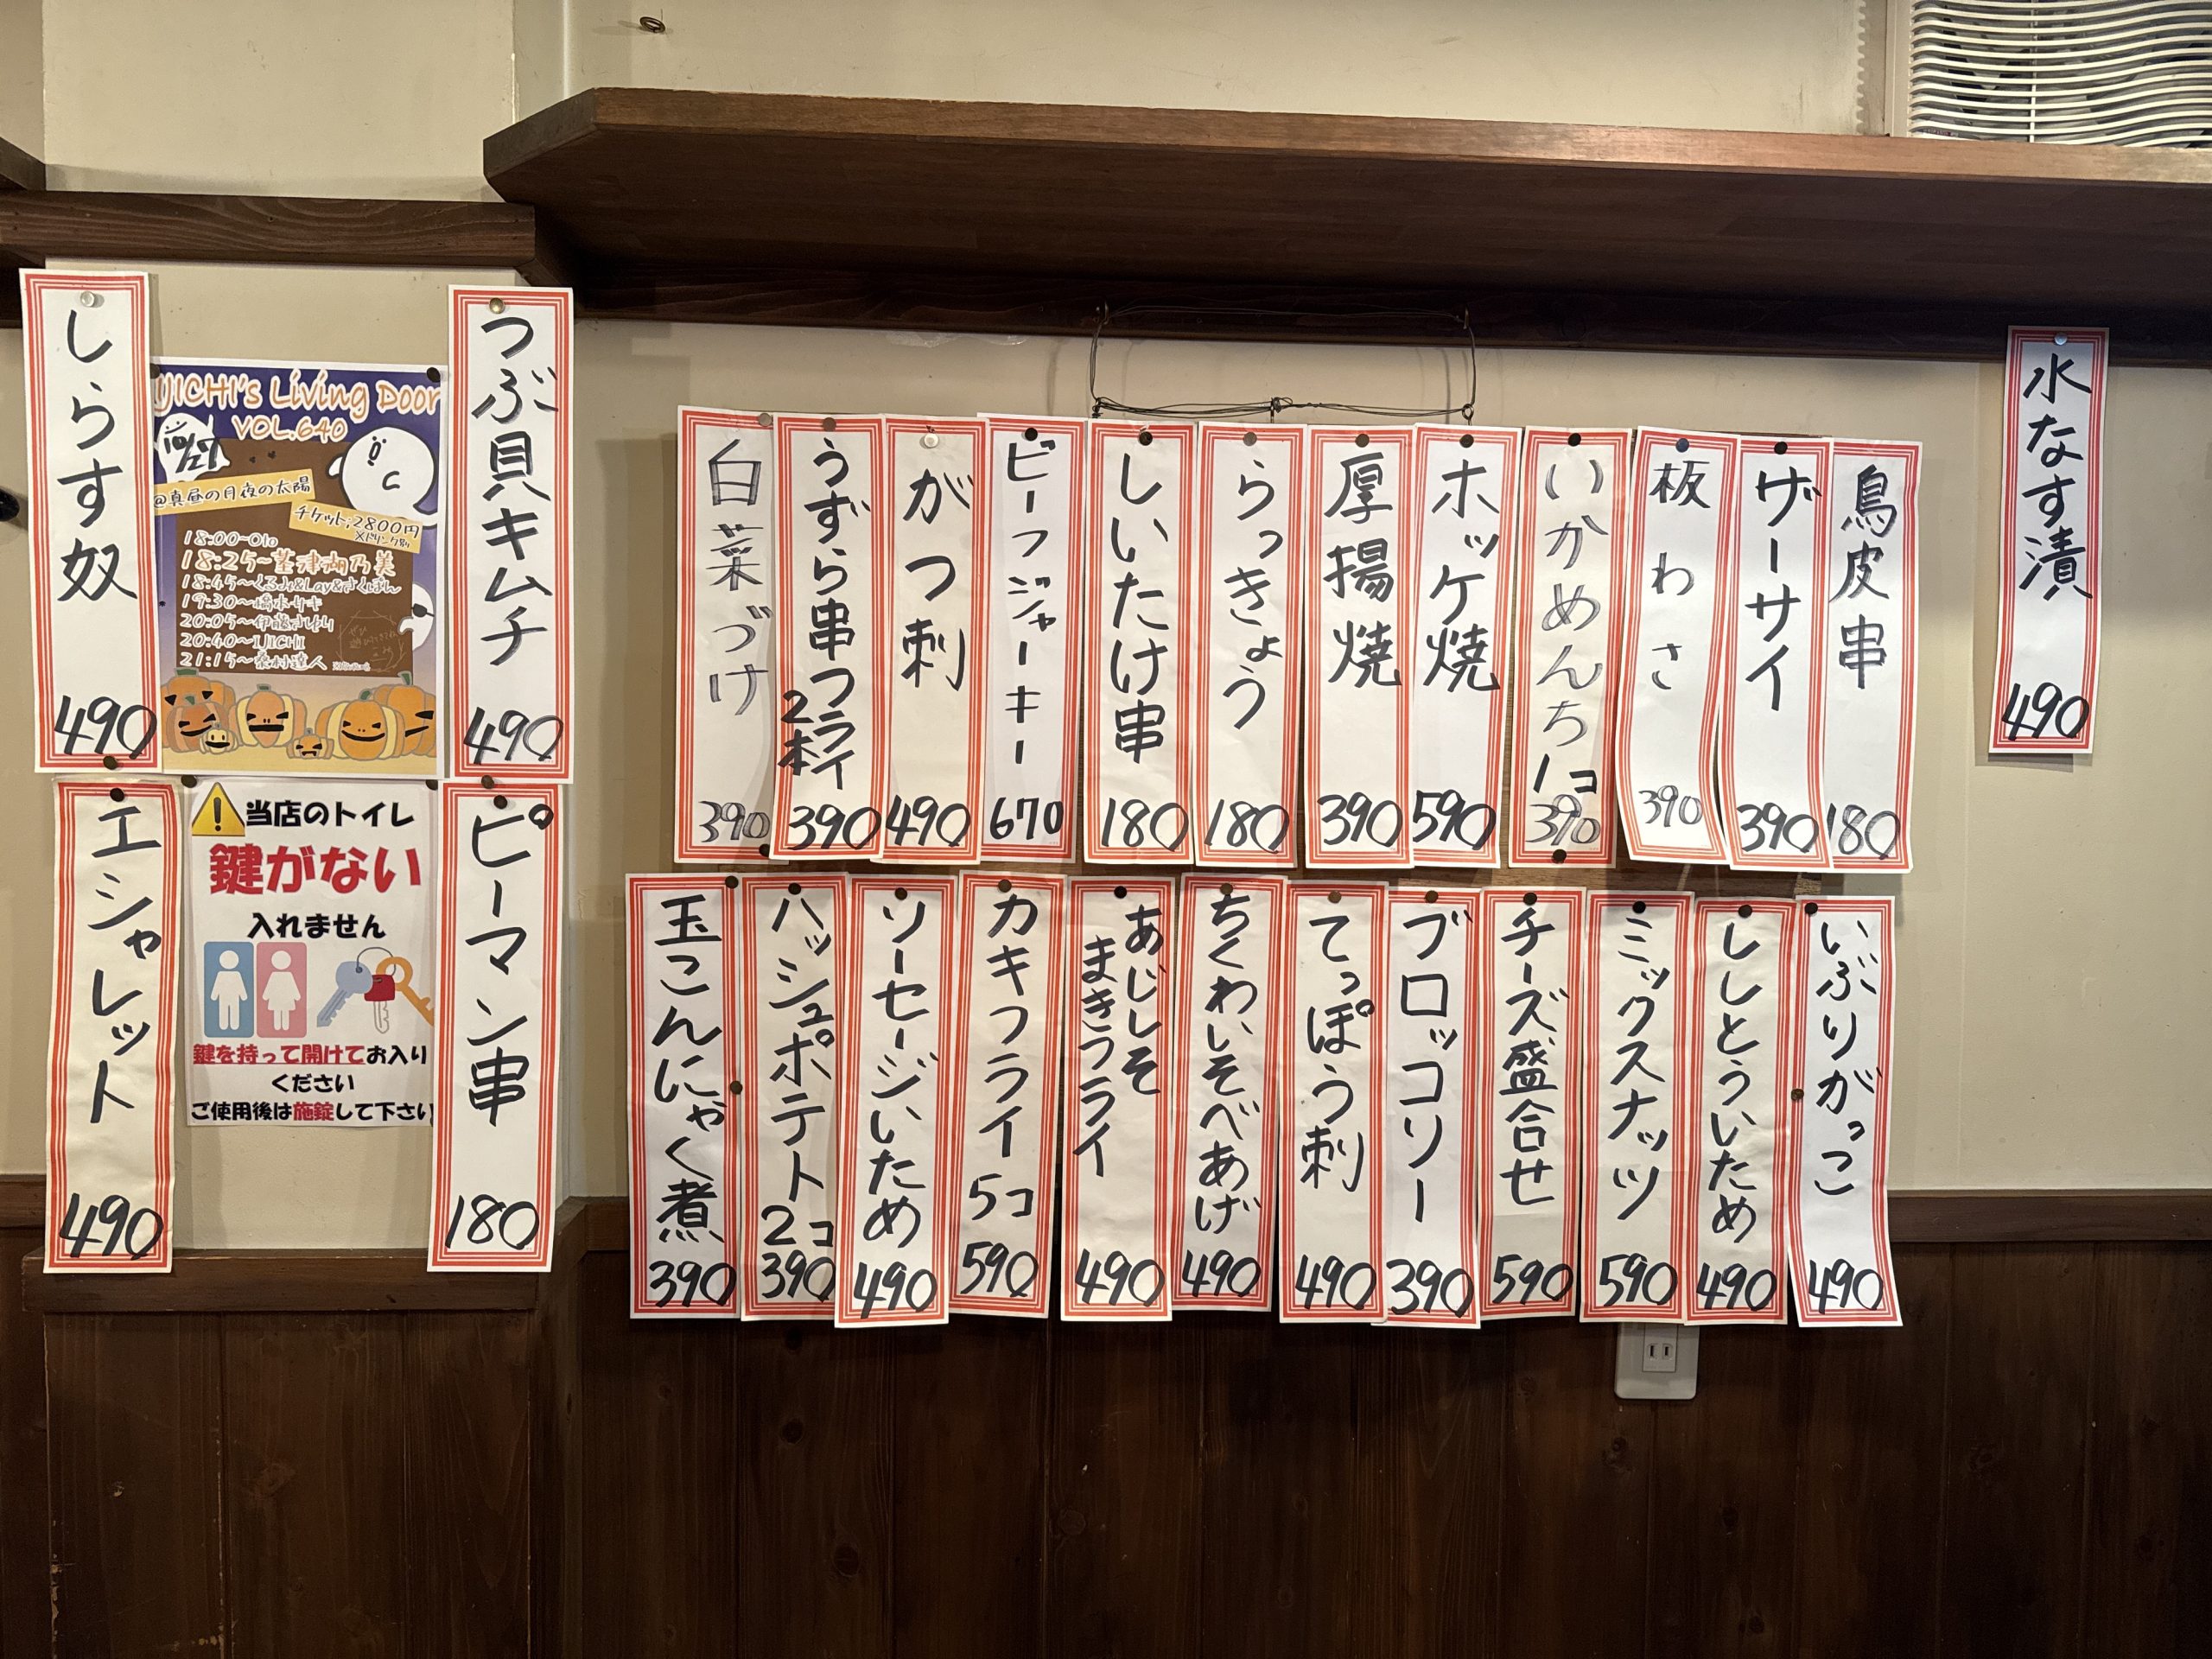 しらす奴
490
IJICHI's Living Door
VOL.640
10/27
@真昼の月夜の太陽
チケット;2800円
※ドリンク別
18:00~Olo
18:25~茎津湖乃美
18:45~くるみ&Lay&さくぽん
19:30~橋本サキ
20:05~伊藤さゆり
20:40~IJICHI
21:15~桑村達人
つぶ貝キムチ
490
エシャレット
490
当店のトイレ
鍵がない
入れません
鍵を持って開けてお入り
ください
ご使用後は施錠して下さい
ピーマン串
180
白菜づけ
390
うずら串フライ
2本
390
がつ刺
490
ビーフジャーキー
670
しいたけ串
180
らっきょう
180
厚揚焼
390
ホッケ焼
590
いかめんち1コ
390
板わさ
390
ザーサイ
390
鳥皮串
180
水なす漬
490
玉こんにゃく煮
390
ハッシュポテト2コ
390
ソーセージいため
490
カキフライ5コ
590
あじしそ
まきフライ
490
ちくわいそべあげ
490
てっぽう刺
490
ブロッコリー
390
チーズ盛合せ
590
ミックスナッツ
590
ししとういため
490
いぶりがっこ
490